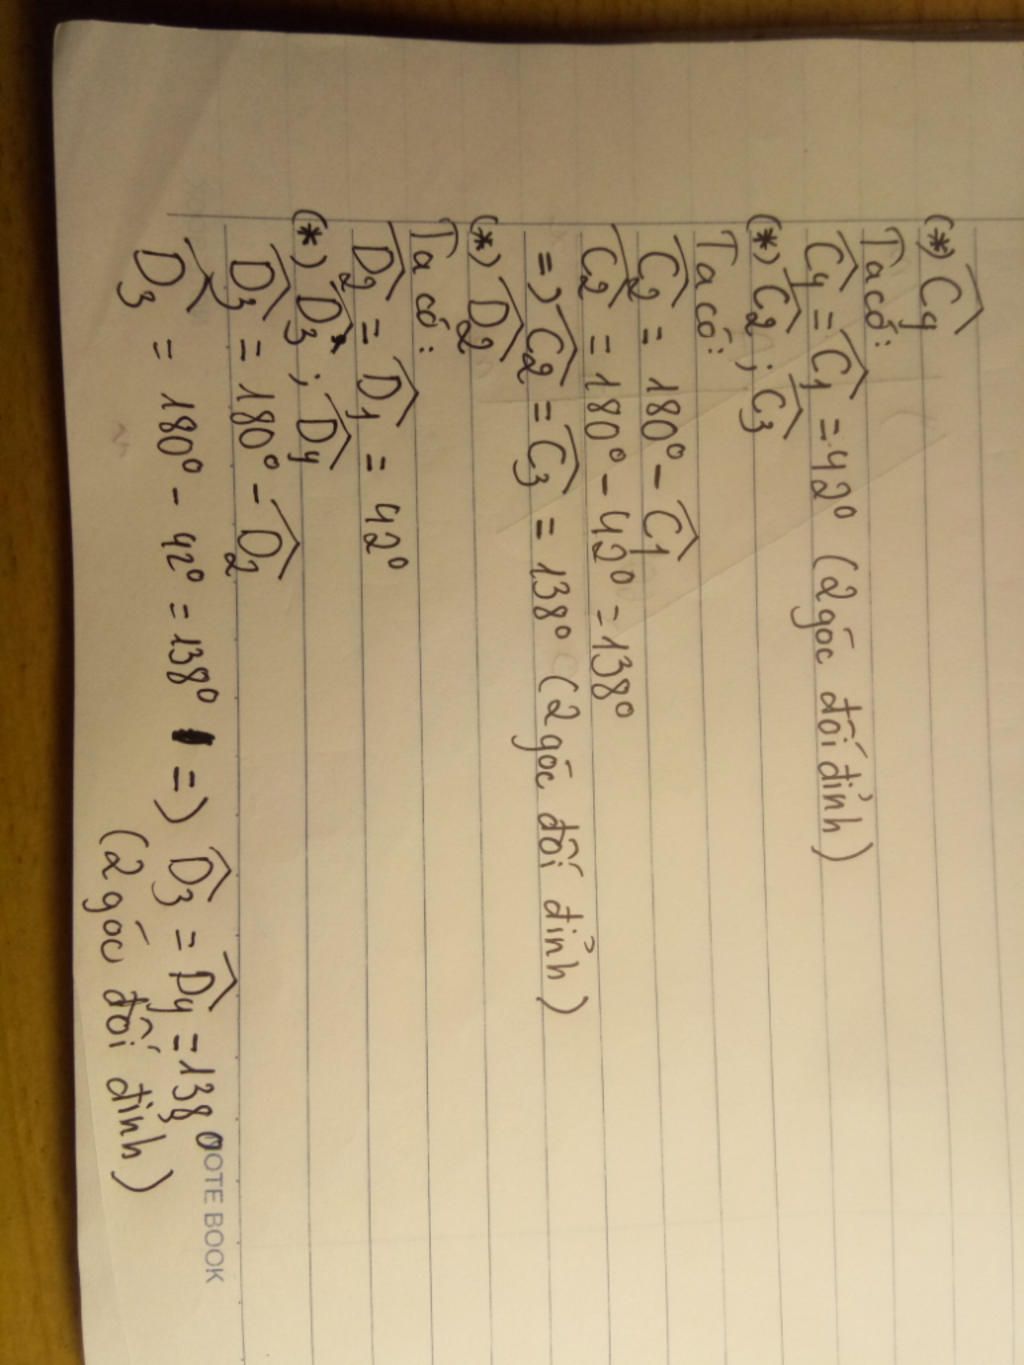 (*) Ĉ4
Ta có:
Ĉ4 = Ĉ1 = 42° (2 góc đối đỉnh)
(*) Ĉ2 ; Ĉ3
Ta có:
Ĉ2 = 180° - Ĉ1
Ĉ2 = 180° - 42° = 138°
=) Ĉ2 = Ĉ3 = 138° (2 góc đối đỉnh)
(*) D̂2
Ta có:
D̂2 = D̂1 = 42°
(*) D̂3 ; D̂4
D̂3 = 180° - D̂2
D̂3 = 180° - 42° = 138° =) D̂3 = D̂4 = 138°
(2 góc đối đỉnh)
OTE BOOK